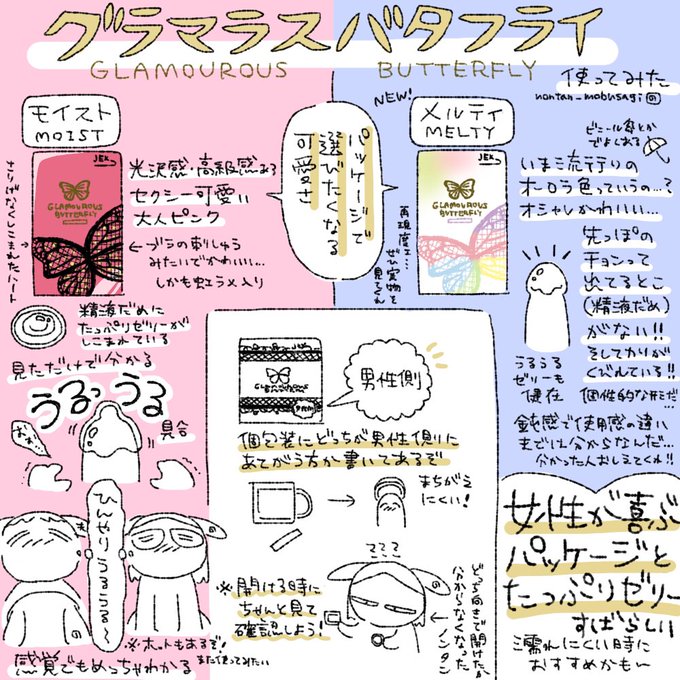 グラマラスバタフライ
GLAMOUROUS BUTTERFLY
使ってみた
nontan_mobusagi
モイスト
MOIST
JEX
GLAMOUROUS
BUTTERFLY
さりげなくしこまれたハート
光沢感・高級感ある
セクシー可愛い
大人ピンク
←ブラの刺しゅう
みたいでかわいい…
しかも虹ラメ入り
パッケージで
選びたくなる
可愛さ
NEW!
メルティ
MELTY
JEX
GLAMOUROUS
BUTTERFLY
再現度エ…
ぜひ実物を
見るべし
ビニール傘とか
でよくある
いま流行りの
オーロラ色っていうの…?
オシャレかわいい…
先っぽの
チョンって
出てるとこ
(精液だめ)
がない!!
そしてカリが
くびれている!!
個性的な形だ…
うるうる
ゼリーも
健在
鈍感で使用感の違い
までは分からなんだ…
分かった人おしえてくれ!!
精液だめに
たっぷりゼリーが
しこまれている
見ただけで分かる
うるっうる
おぉ
見合
ひんやりうるうる〜
※ホットもあるぞ!
また使ってみたい
感覚でもめっちゃわかる
GLAMOUROUS
男性側
個包装にどっちが男性側に
あてがう方か書いてあるぞ
まちがえ
にくい!
※開ける時に
ちゃんと見て
確認しよう!
どっち向きで開けたか
分からなくなった
ノンタン
女性が喜ぶ
パッケージと
たっぷりゼリー
すばらしい
濡れにくい時に
おすすめかも〜